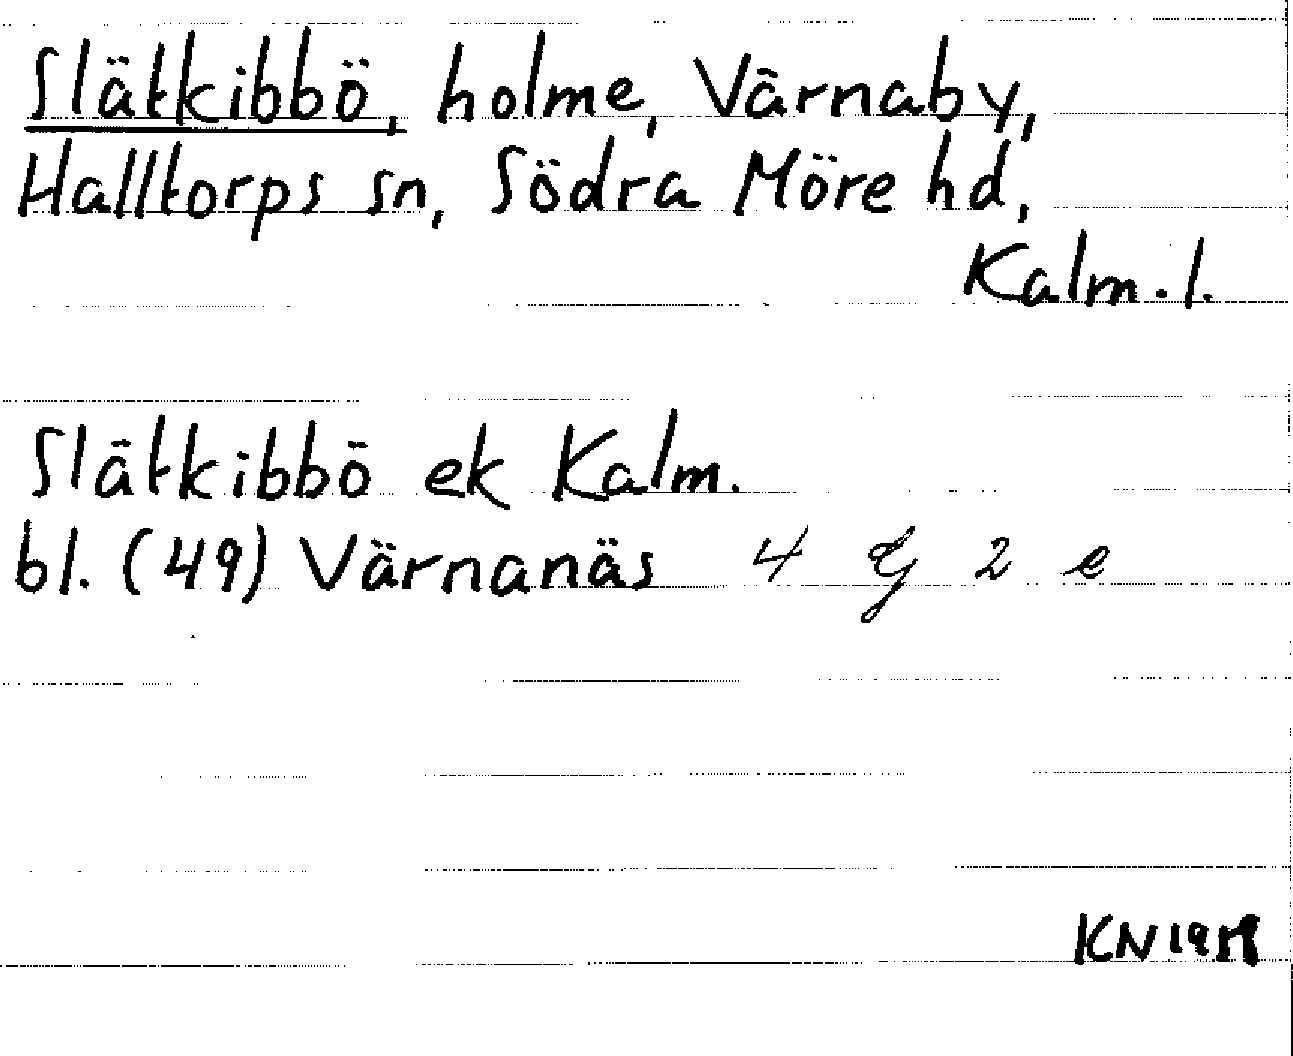 Slätkibbö, holme, Värnaby,
Halltorps sn, Södra Möre hd,
Kalm. l.
Slätkibbö ek Kalm.
bl. (49) Värnanäs 4 G 2 e
KN 1959